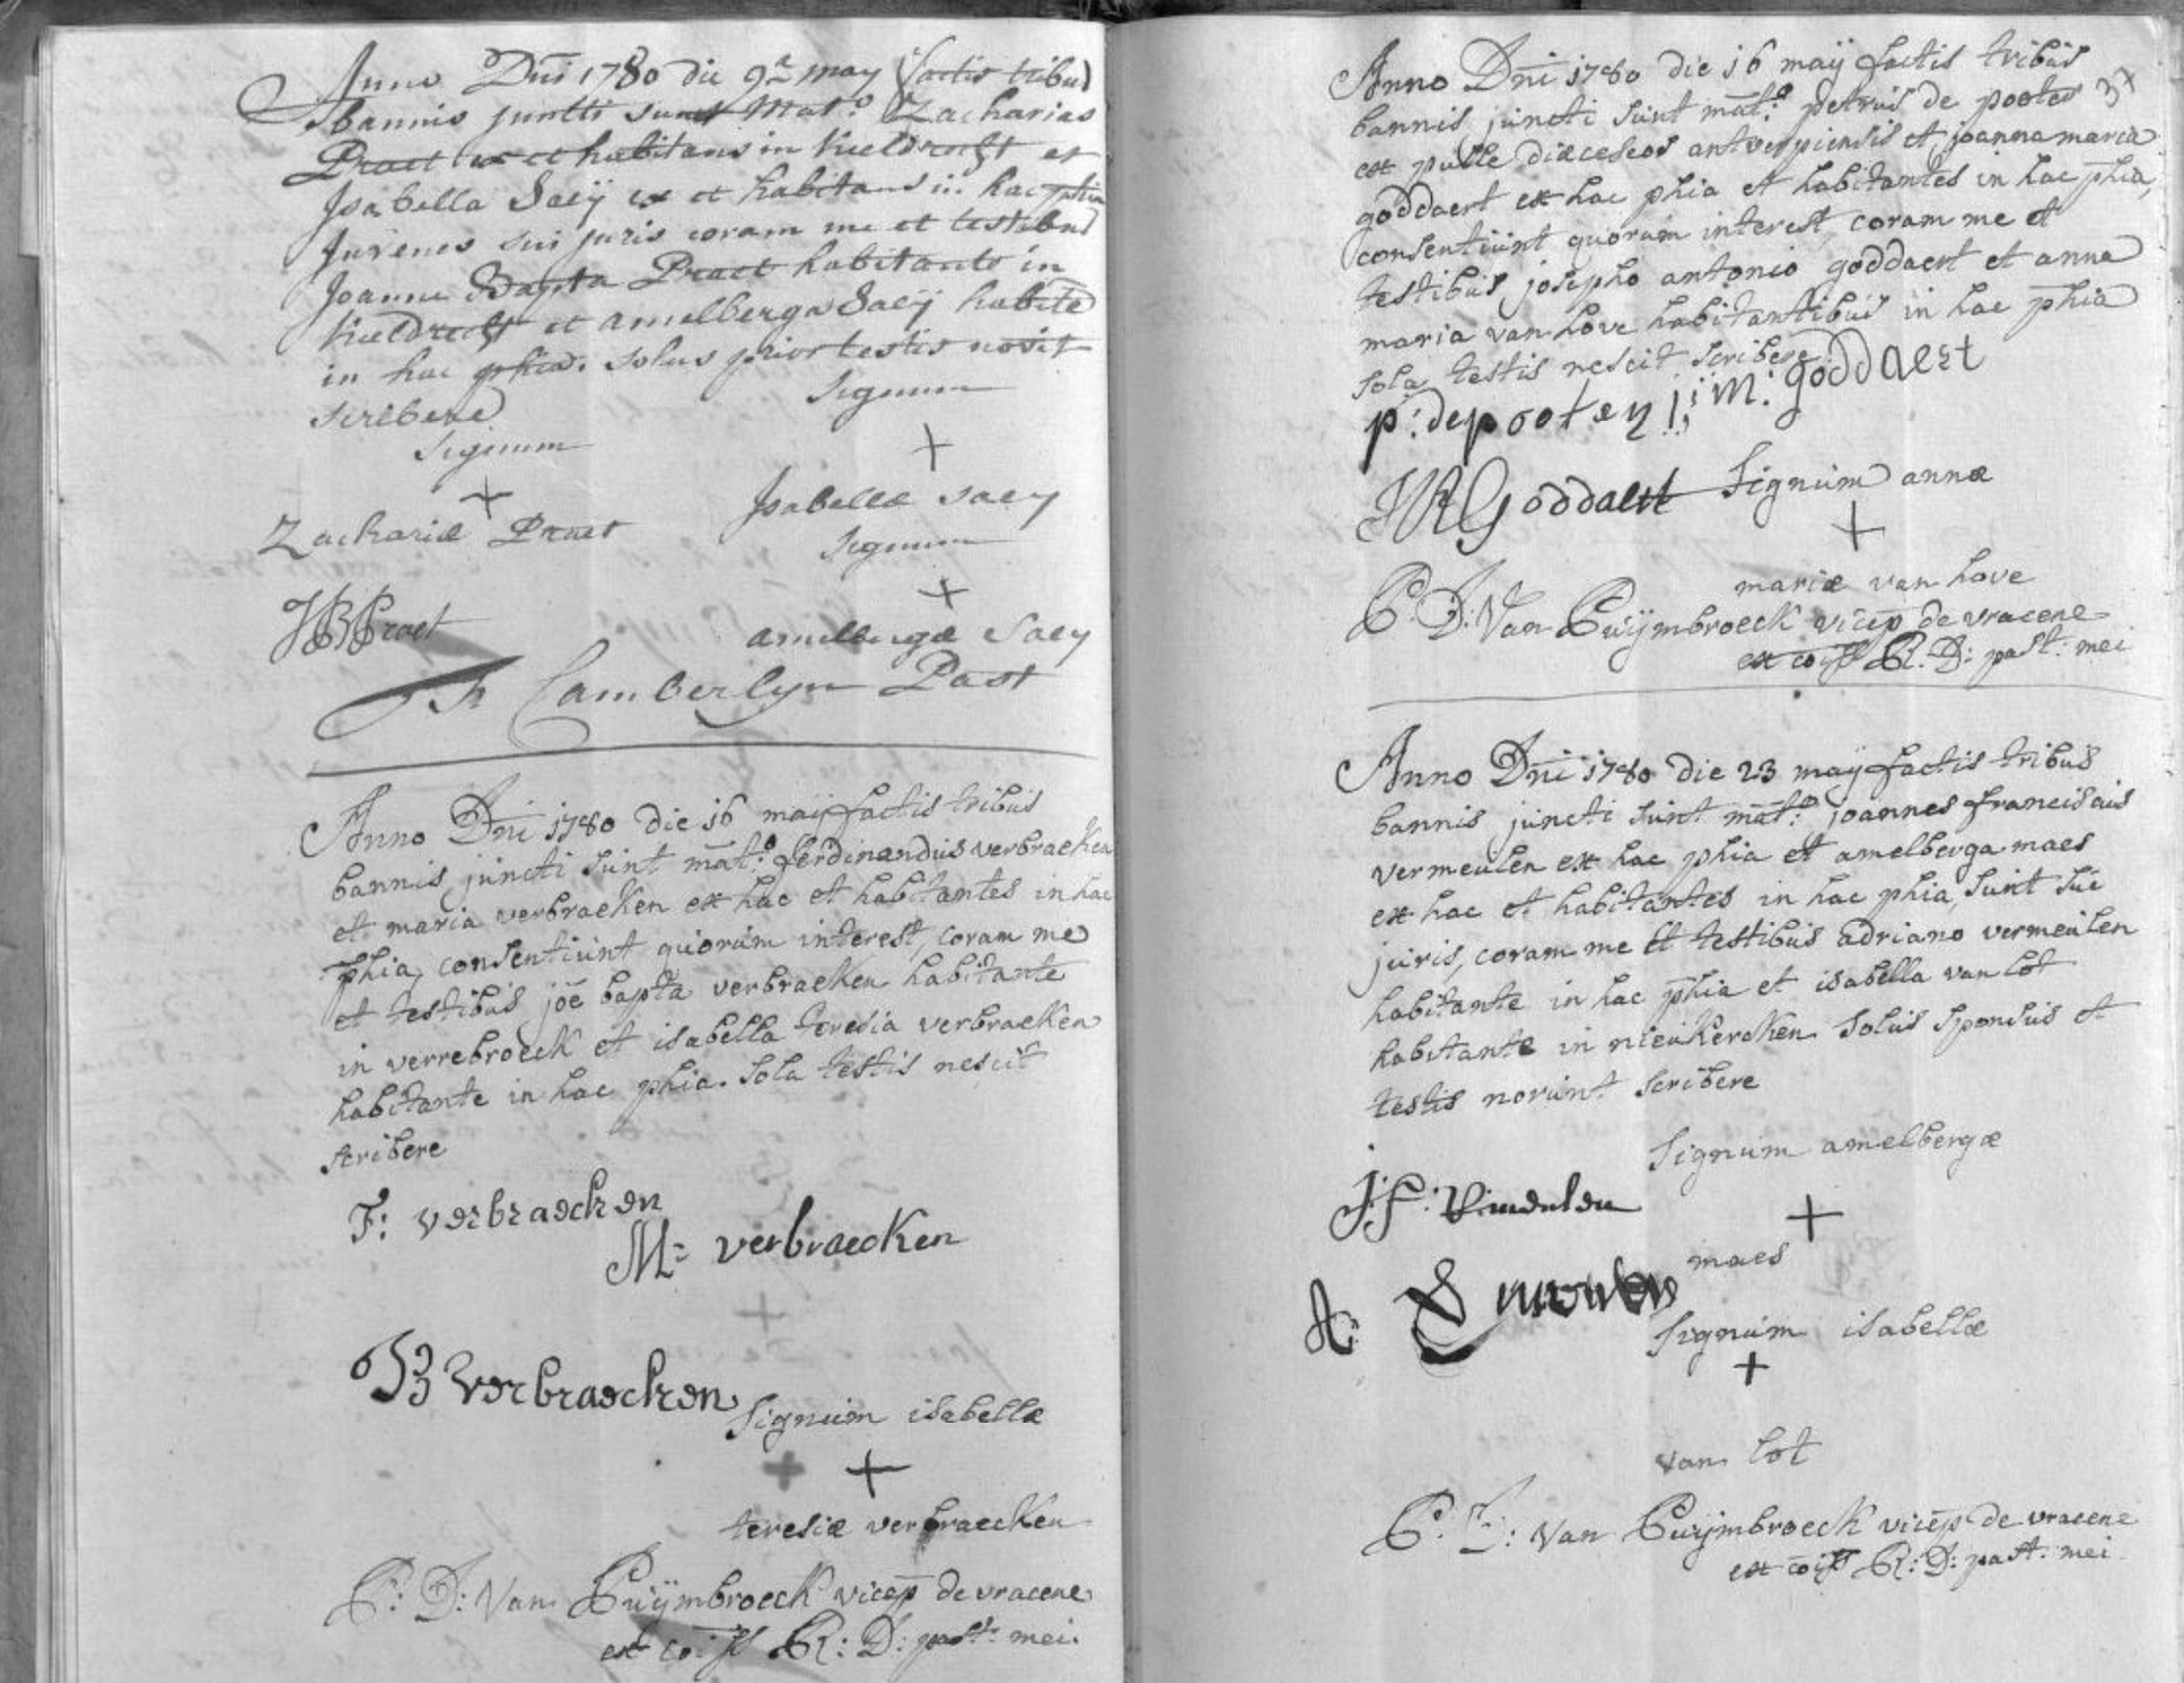 Anno Dni 1780 die 9a may factis tribus
bannis juncti sunt Mat:o Zacharias
Praet ex et habitans in kieldrecht et
Isabella Saey ex et habitans in hac phia
Juvenes sui juris coram me et testibus
Joanne Bapta Praet habitante in
kieldrecht et amelberga Saeÿ habite
in hac phia. solus prior testis novit
scribere
Signum
Signum
+
+
Zachariæ Praet
Isabellæ Saey
Signum
+
JB Praet
amelbergæ Saey
Camberlyn Past
Anno Dni 1780 die 16 maÿ factis tribus
bannis juncti sunt mat:o ferdinandus verbraeken
et maria verbraeken ex hac et habitantes in hac
phia, consentiunt quorum interest, coram me
et testibus joe bapta verbraeken habitante
in verrebroeck et isabella teresia verbraeken
habitante in hac phia. sola testis nescit
scribere
F: verbraecken
M: verbraecken
B verbraecken
Signum isabellæ
+
teresiæ verbraecken
P: D: Van Puÿmbroeck vicep de vracene
ex coiss R: D: past: mei.
37
Anno Dni 1780 die 16 maÿ factis tribus
bannis juncti sunt mat:o petrus de pooter
ex pulle diæceseos antverpiensis et joanna maria
goddaert ex hac phia et habitantes in hac phia,
consentiunt quorum interest, coram me et
testibus josepho antonio goddaert et anna
maria van hove habitantibus in hac phia
sola testis nescit scribere
p: de pooter j: m: goddaert
JA Goddaert
Signum annæ
+
mariæ van hove
P. D: Van Puÿmbroeck vicep de vracene
ex coiss R. D: past: mei
Anno Dni 1780 die 23 maÿ factis tribus
bannis juncti sunt mat:o joannes franciscus
vermeulen ex hac phia et amelberga maes
ex hac et habitantes in hac phia, sunt sui
juris, coram me et testibus adriano vermeulen
habitante in hac phia et isabella van lot
habitante in nieukercken solus sponsus et
testis norunt scribere
Signum amelbergæ
+
maes
A:
Signum isabellæ
+
van lot
P. D: Van Puÿmbroeck vicep de vracene
ex coiss R: D: past: mei